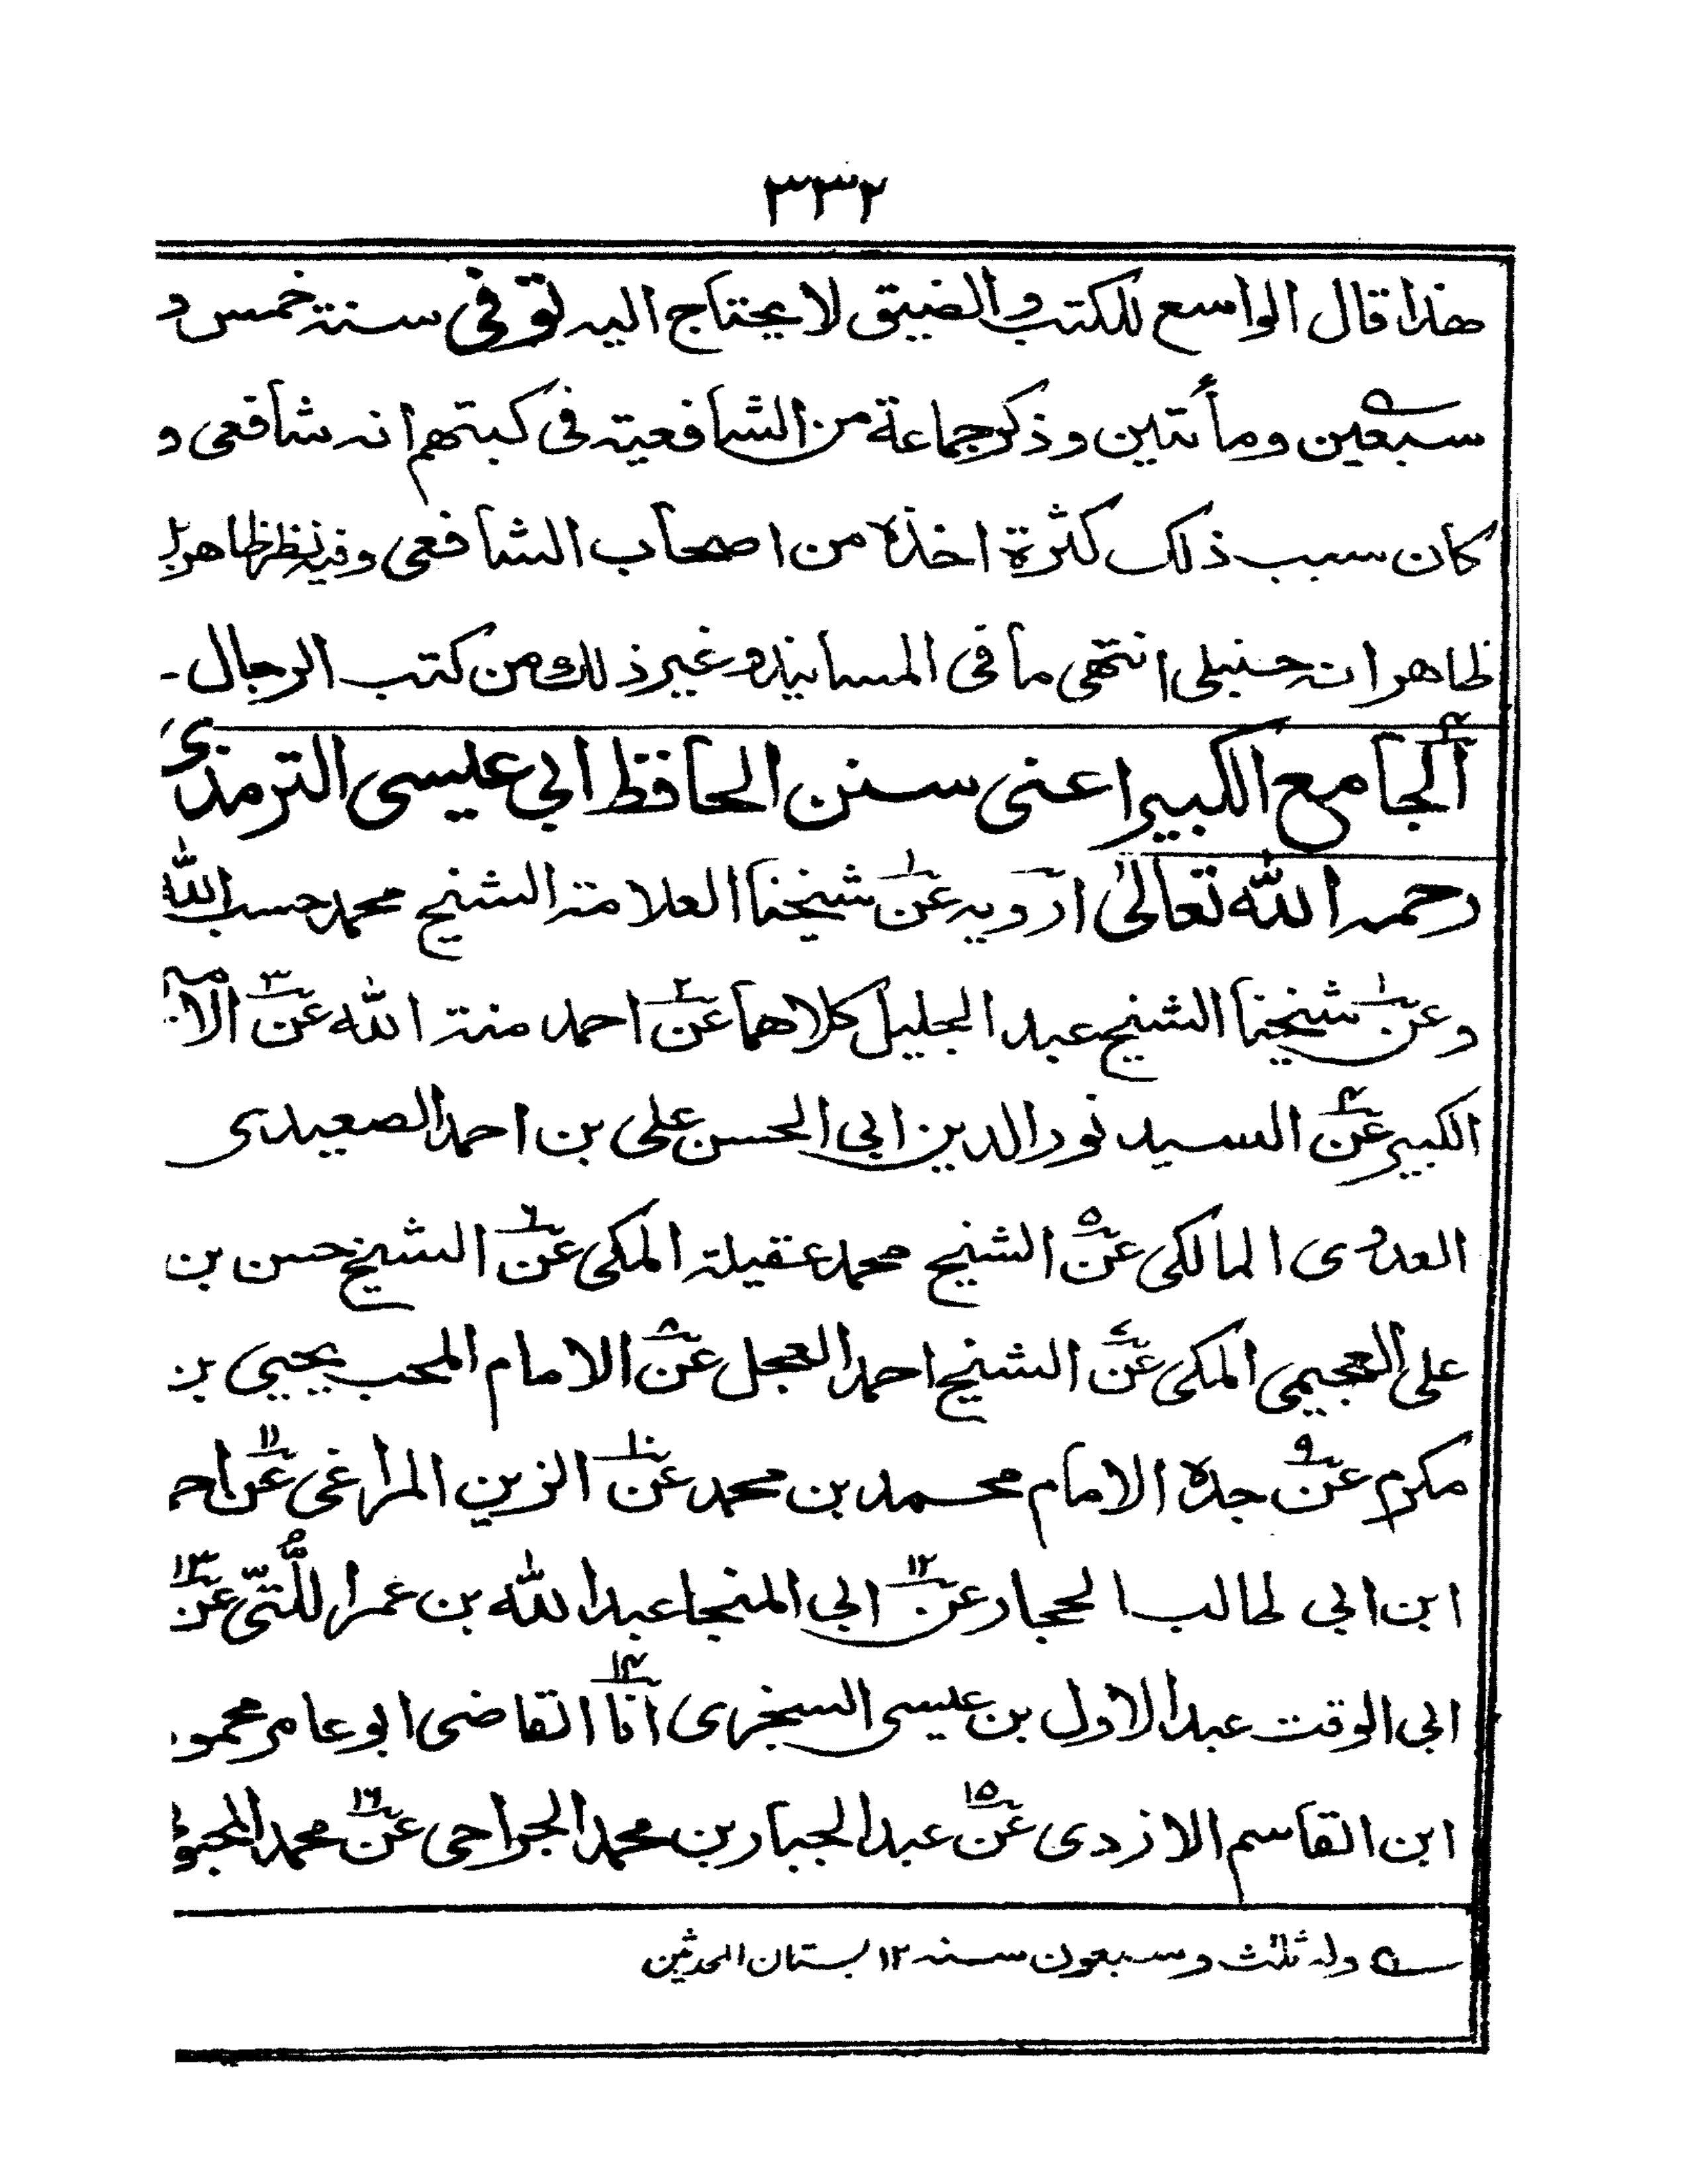 ٣٣٢
هذا قال الواسع للكتب والضيق لا يحتاج اليه توفى سنة خمس و
سبعين ومأتين وذكر جماعة من الشافعية فى كبتهم انه شافعى و
كان سبب ذلك كثرة اخذه من اصحاب الشافعى وفيه نظر ظاهر بل
ظاهر انه حنبلى انتهى ما فى المسانيد وغير ذلك من كتب الرجال ـ
الجامع الكبير اعنى سنن الحافظ ابي عيسى الترمذى
رحمه الله تعالى ارويه عن١ شيخنا العلامة الشيخ محمد حسب الله
وعن١ شيخنا الشيخ عبد الجليل كلاهما عن٢ احمد منة الله عن٣ الامير
الكبير عن٤ السيد نور الدين ابي الحسن على بن احمد الصعيدى
العدوى المالكى عن٥ الشيخ محمد عقيلة المكى عن٦ الشيخ حسن بن
على العجيمى المكى عن٧ الشيخ احمد العجل عن٨ الامام المحب يحيى بن
مكرم عن٩ جده الامام محمد بن محمد عن١٠ الزين المراغى عن١١ احمد
ابن ابي طالب الحجار عن١٢ ابي المنجا عبد الله بن عمر اللُّتّى عن١٣
ابي الوقت عبد الاول بن عيسى السجزى انا١٤ القاضى ابو عامر محمود
ابن القاسم الازدى عن١٥ عبد الجبار بن محمد الجراحى عن١٦ محمد المحبوبى
وله ثلث وسبعون سنه ١٢ بستان المحدثين